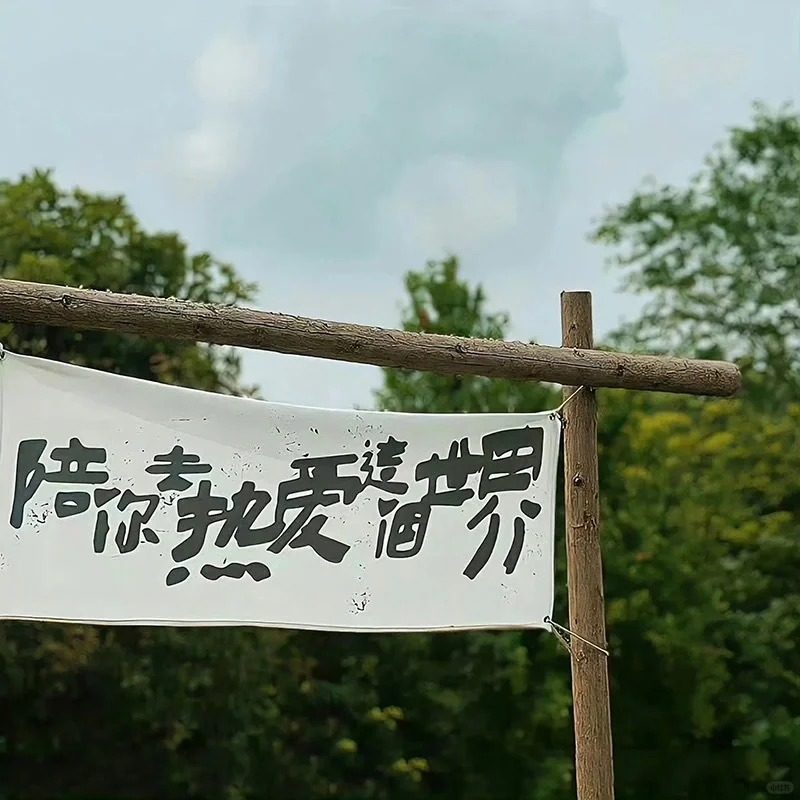 陪你去热爱这個世界